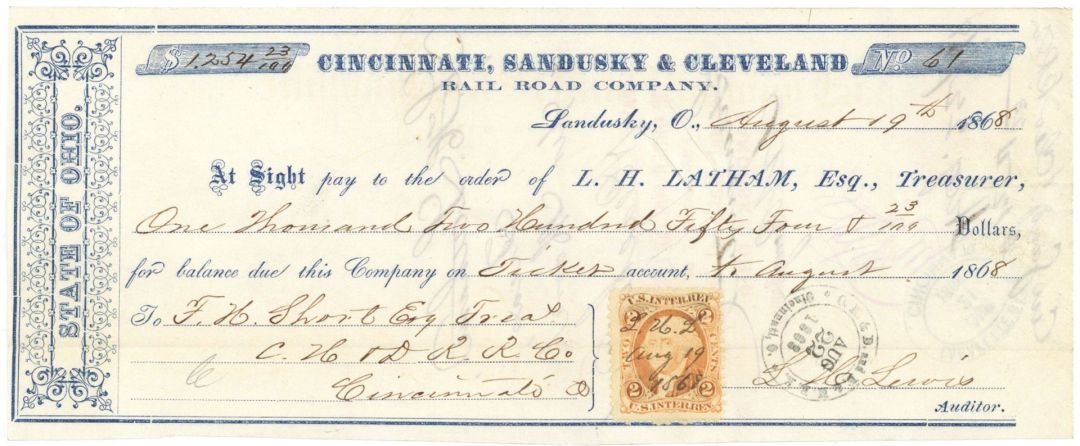 $ 1,254 23/100 CINCINNATI, SANDUSKY & CLEVELAND No. 61
RAIL ROAD COMPANY.
Sandusky, O., August 19th 1868
At Sight pay to the order of L. H. LATHAM, Esq., Treasurer,
One Thousand Two Hundred Fifty Four & 23/100 Dollars,
for balance due this Company on Ticket account, to August 1868
To F. H. Short Esq Treas
C. H & D R. R. Co
Cincinnati O
Lewis
Auditor.
STATE OF OHIO.
U.S. INTER. REV.
2 2
Aug 19
1868
2 2
U.S. INTER. REV.
AUG
22
1868
Cincinnati, O.